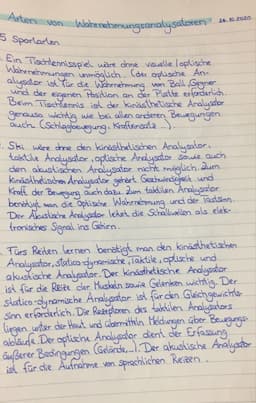 Arten von Wahrnehmungsanalysatoren 26.10.2020
5 Sportarten
Ein Tischtennisspiel wäre ohne visuelle/optische
Wahrnehmungen unmöglich. Der optische An-
alysator ist für die Wahrnehmung von Ball, Gegner
und der eigenen Position an der Platte erforderlich.
Beim Tischtennis ist der kinästhetische Analysator
genauso wichtig wie bei allen anderen Bewegungen
auch (Schlagbewegung, Krafteinsatz ...).
Ski wäre ohne den kinästhetischen Analysator,
taktile Analysator, optische Analysator sowie auch
den akustischen Analysator nicht möglich. Zum
kinästhetischen Analysator gehört Geschwindigkeit und
Kraft der Bewegung auch dazu. Zum taktilen Analysator
benötigt man die optische Wahrnehmung und der Tastsinn.
Der Akustische Analysator leitet die Schallwellen als elek-
tronisches Signal ins Gehirn.
Fürs Reiten lernen benötigt man den kinästhetischen
Analysator, statico-dynamische, Taktile, optische und
akustische Analysator. Der kinästhetische Analysator
ist für die Reize der Muskeln sowie Gelenken wichtig. Der
statico-dynamische Analysator ist für den Gleichgewichts-
sinn erforderlich. Die Rezeptoren des taktilen Analysators
liegen unter der Haut und übermitteln Meldungen über Bewegungs-
abläufe. Der optische Analysator dient der Erfassung
äußerer Bedingungen (Gelände,...). Der akustische Analysator
ist für die Aufnahme von sprachlichen Reizen.